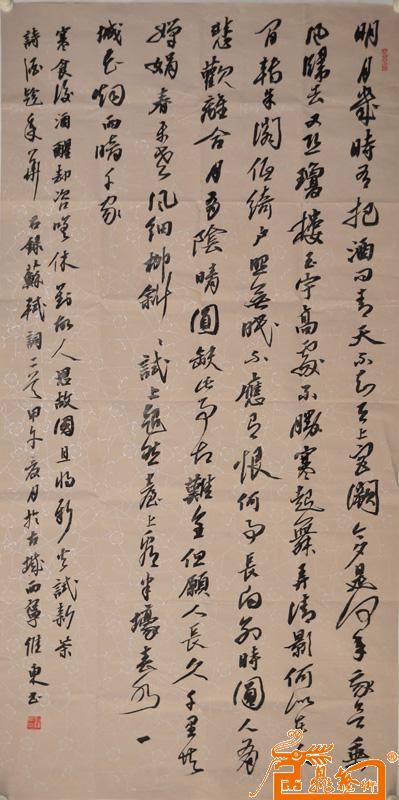 明月幾時有把酒问青天不知天上宫闕今夕是何年我欲乘
风歸去又恐瓊樓玉宇高處不勝寒起舞弄清影何似在人
间轉朱阁低綺户照無眠不應有恨何事長向别時圓人有
悲歡離合月有陰晴圓缺此事古難全但願人長久千里共
嬋娟 春未老风细柳斜斜試上超然臺上看半壕春水一
城花烟雨暗千家
寒食後酒醒却咨嗟休對故人思故國且将新火試新茶
詩酒趁年華 右録蘇軾詞二首甲午夏月於古城西寧維東书